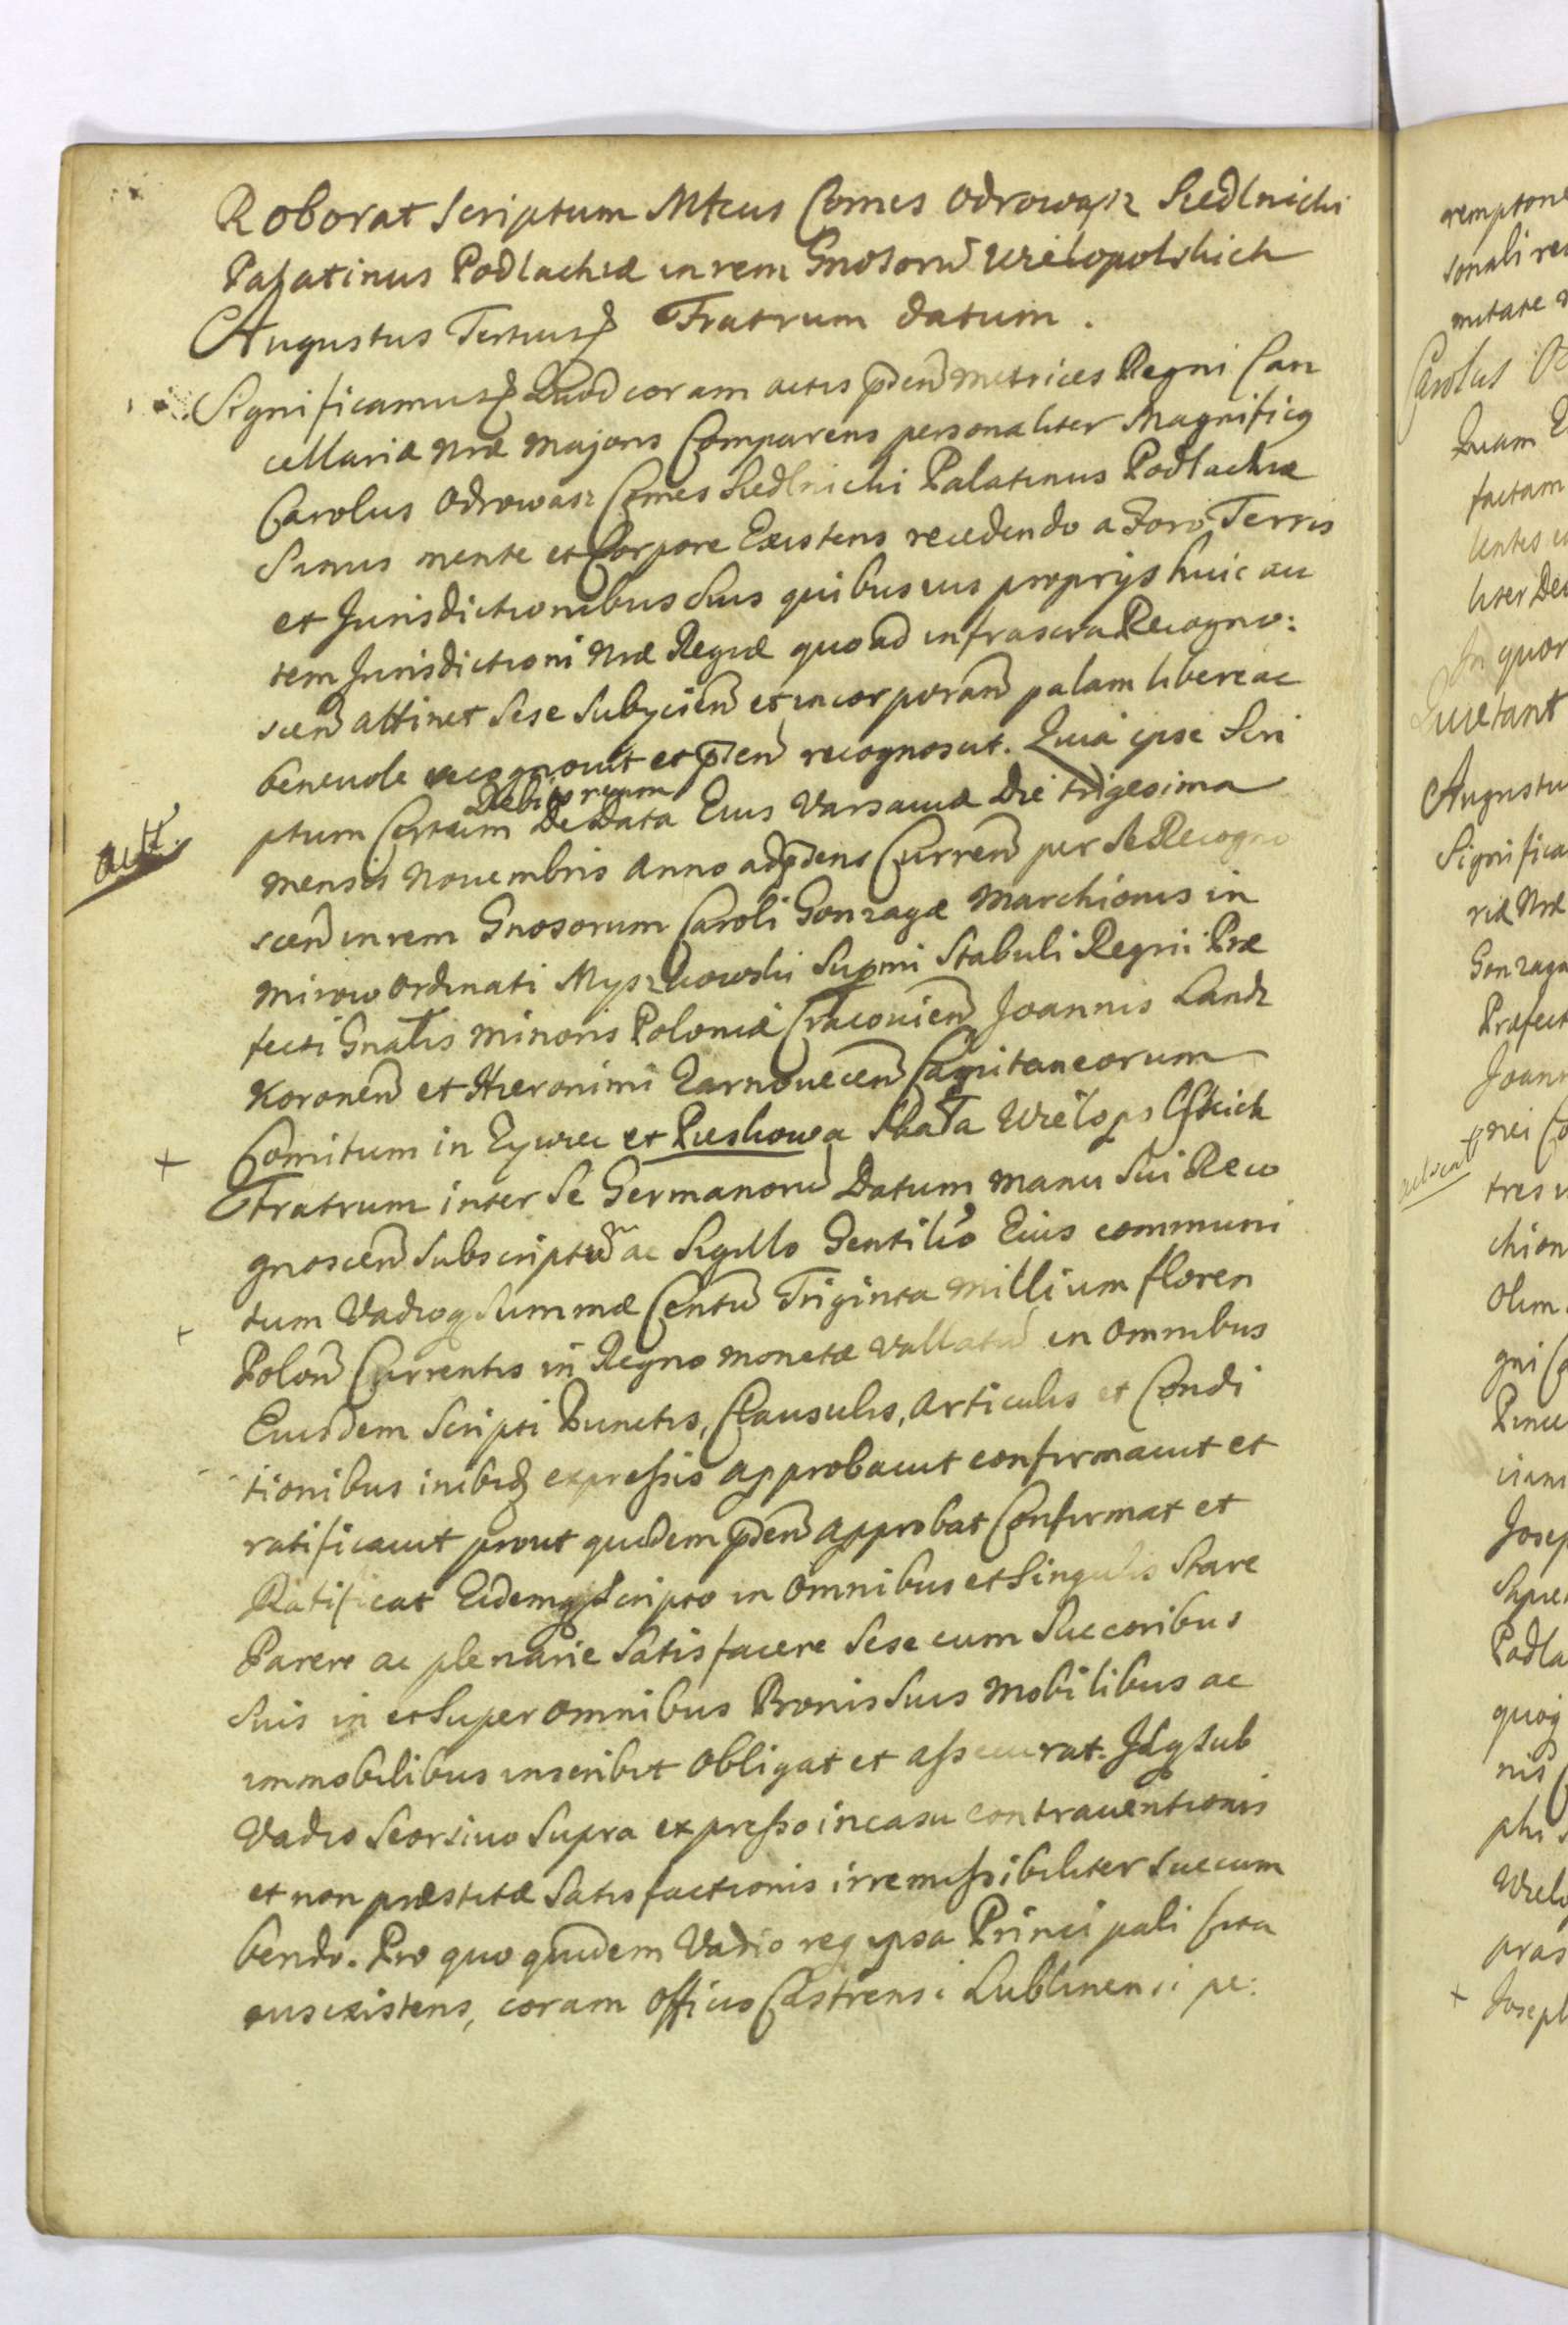 Roborat Scriptum Mtcus Comes Odrowąsz Siedlnicki
Palatinus Podlachiæ in rem Gnosorū Wielopolskich
Augustus Tertius Fratrum datum.
Significamus Quod coram actis pden Metrices Regni Can
cellariæ Nræ Majoris Comparens personaliter Magnificq
Carolus Odrowasz Comes Siedlnicki Palatinus Podlachiæ
Sanus mente et Corpore Existens recedendo a Foro Terris
et Jurisdictionibus Suis quibusvis proprijs huic au
tem Jurisdictioni Nræ Regiæ quo ad infrascra Recogno:
scen attinet Sese Subijcien et incorporan palam libere ac
benevole recognovit et pden recognoscit. Quia ipse Scri
Debitoreum
ptum Certum De Data Eius Varsaviæ Die trigesima
actt.
mensis Novembris Anno adpdens Curren per Se Recogno
scen in rem Gnosorum Caroli Gonzagæ Marchionis in
Mirow Ordinati Myszkowski Supmi Stabuli Regni Præ
fecti Gnalis Minoris Poloniæ Cracovien Joannis Landz
Koronen et Hieronimi Zarnovecen Capitaneorum
+ Comitum in Zywiec et Pieskowa Skała Wielopolskich
Fratrum inter Se Germanorū Datum manu Sui Reco
gnoscen Subscriptū ac Sigillo Gentilio Eius communi
tum Vadioq Summæ Centū Triginta Millium floren
Polon Currentis in Regno monetæ vallatū in Omnibus
Eiusdem Scripti Punctis, Clausulis, Articulis et Condi
tionibus inibiq expressis approbavit confirmavit et
ratificavit prout quidem pden approbat Confirmat et
Ratificat Eidemq Scripto in Omnibus et Singulis Stare
Parere ac plenarie Satisfacere Sese cum Succoribus
Suis in et Super omnibus Bonis Suis Mobilibus ac
immobilibus inscribit Obligat et assecurat. Idq sub
Vadio Seorsivo Supra expresso in casu contraventionis
et non præstitæ Satisfactionis irremissibiliter Succum
bendo. Pro quo quidem Vadio req ipsa Principali
existens, coram Officio Castrensi Lublinensi pe:
remptorie
sonali
mutare
Carolus
Quam
factam
lentes
liter
In quor
Quietant
Augustu
Significa
riæ Nræ
Gonzaga
Præfect
Joann
nei Co
tres
chion
Olim
gni
Josep
Sapie
Podla
quoq
nis
Wielo
+ Joseph